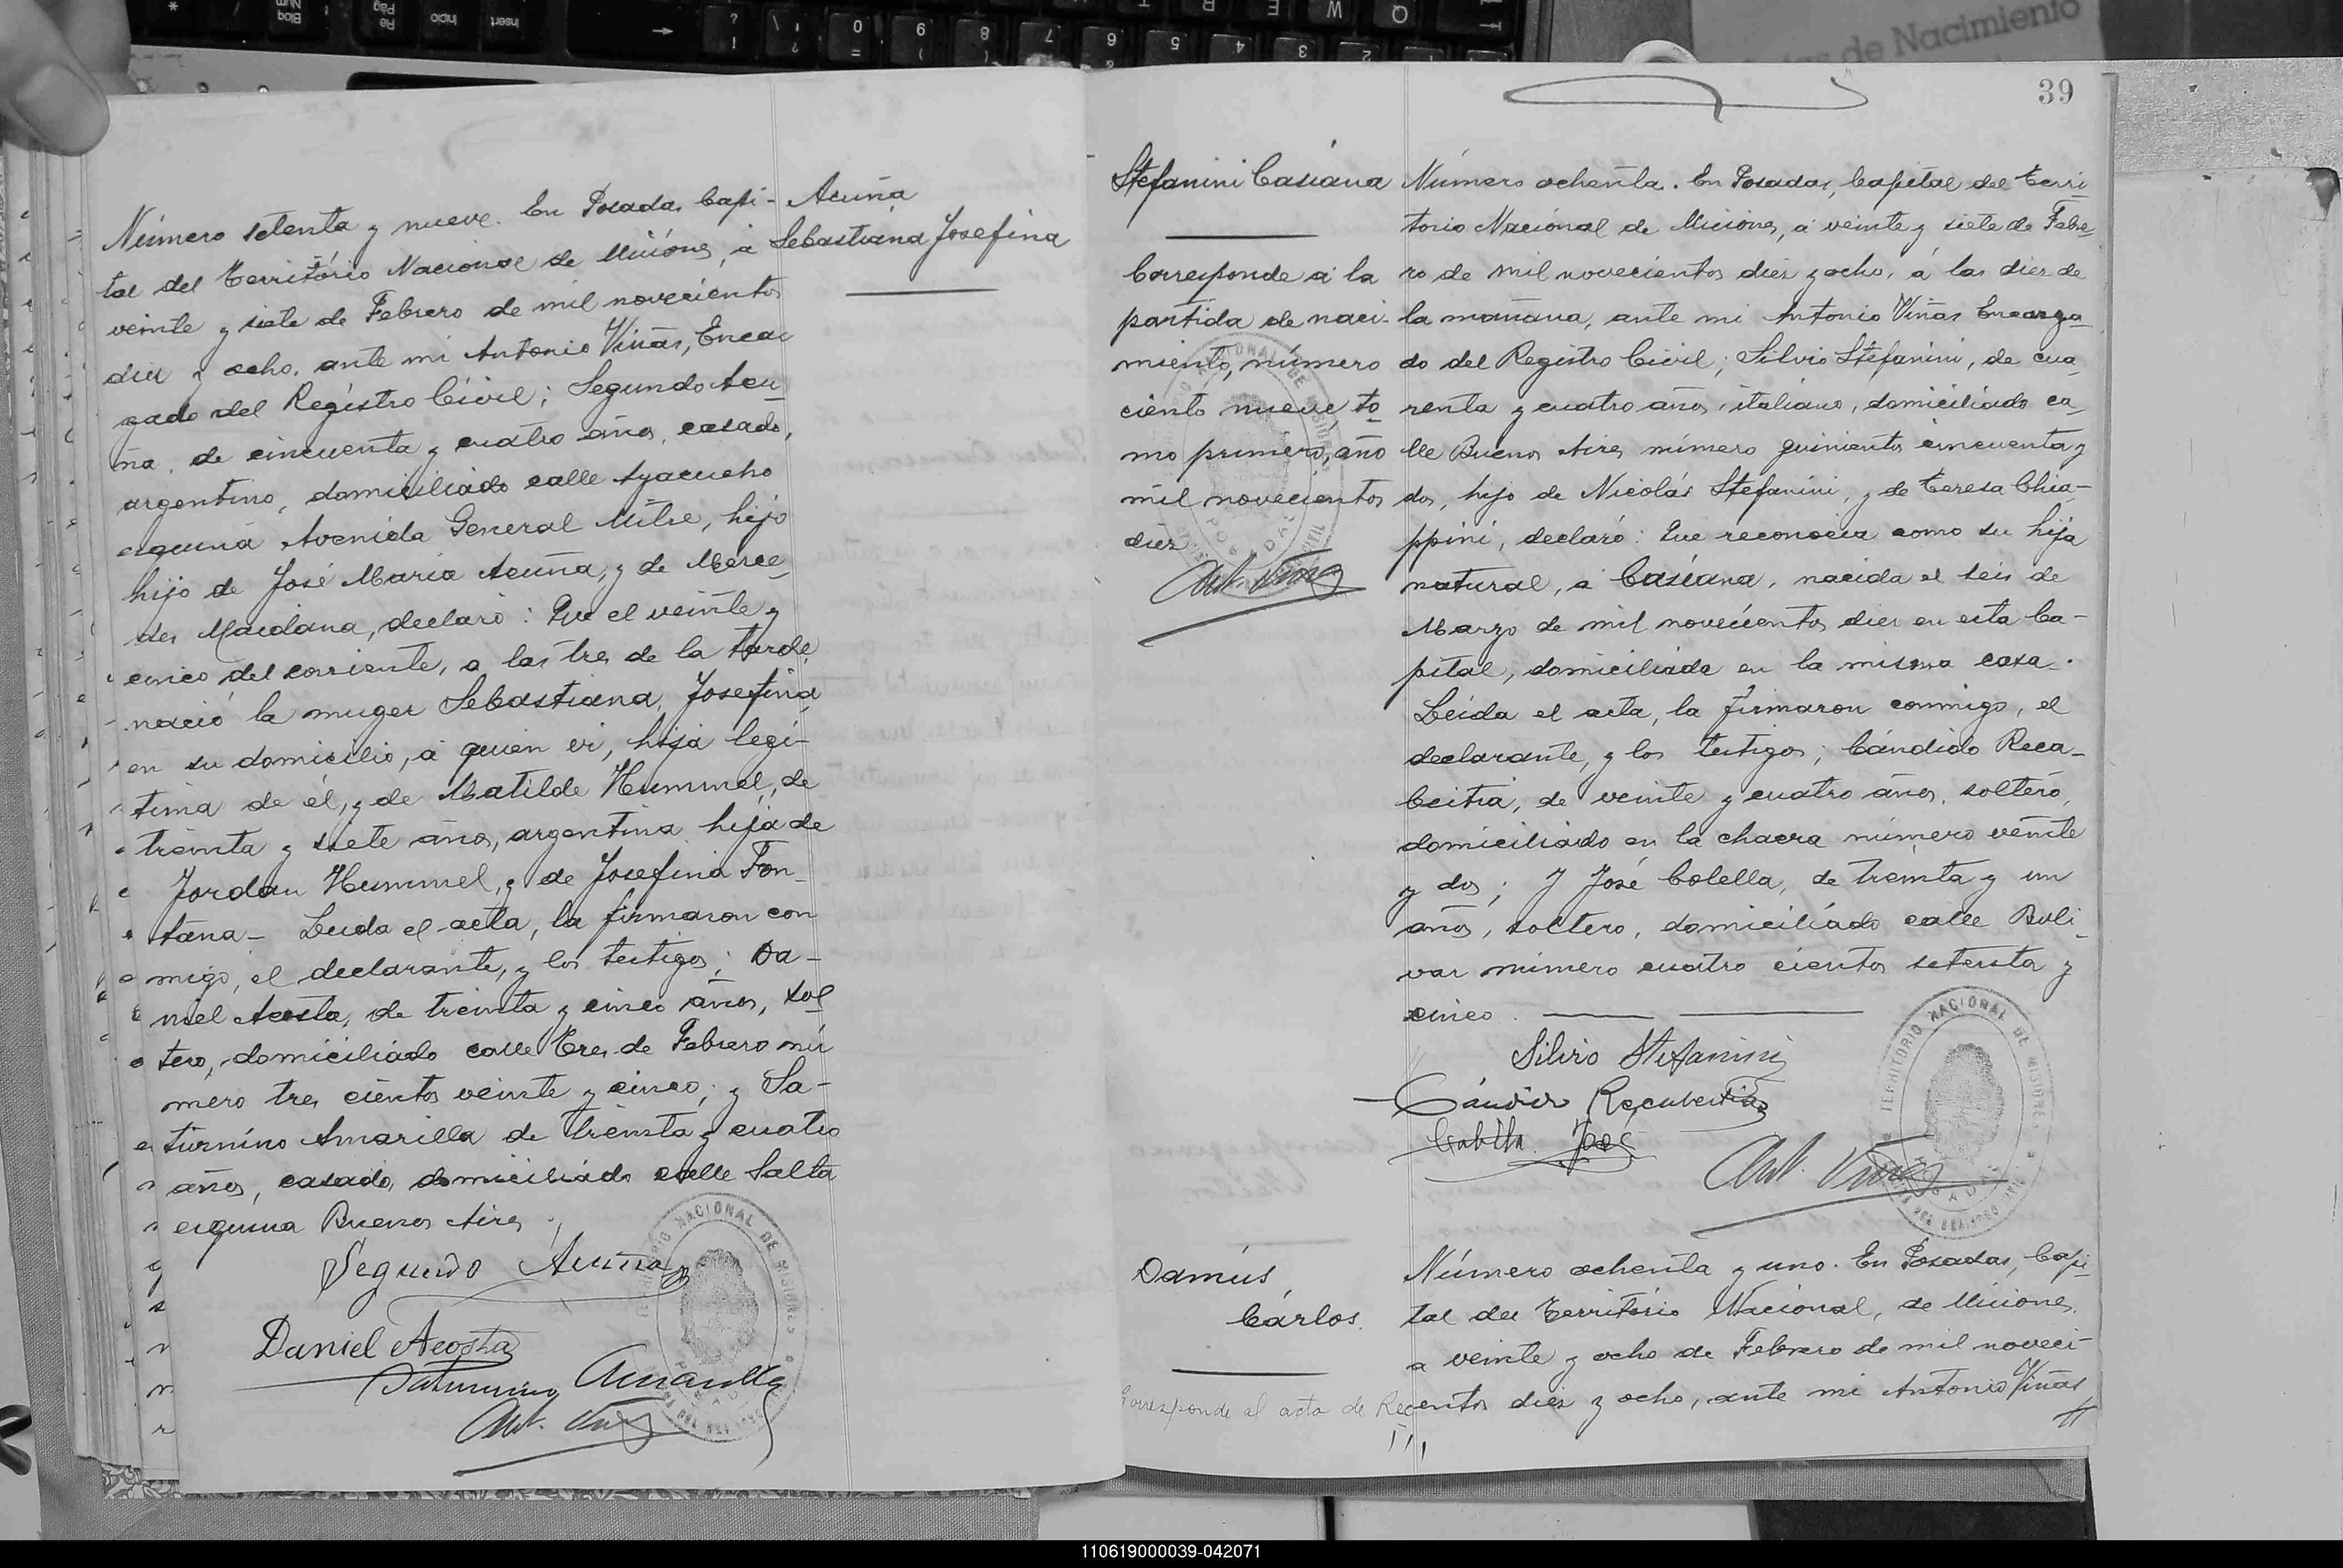 Número setenta y nueve. En Posadas Capi-
tal del Território Nacional de Misiónes, á
veinte y siete de Febrero de mil novecientos
diez y ocho, ante mi Antonio Viñas, Encar
gado del Registro Civil; Segundo Acu
ña, de cincuenta y cuatro años, casado,
argentino, domiciliado calle Ayacucho
esquina Avenida General Mitre, hijo
hijo de José Maria Acuña, y de Merce
des Maidana, declaró: Que el veinte y
cinco del corriente, a las tres de la tarde
nació la muger Sebastiana, Josefina
en su domicilio, á quien vi, hija legi-
tima de él, y de Matilde Hummel, de
treinta y siete años, argentina hija de
Jordan Hummel, y de Josefina Fon-
tana- Leida el acta, la firmaron con
migo, el declarante, y los testigos; Da-
niel Acosta, de treinta y cinco años, sol
tero, domiciliado calle Tres de Febrero nú
mero tres cientos veinte y cinco; y Sa-
turnino Amarilla de treinta y cuatro
años, casado, domiciliado calle Salta
esquina Buenos Aires
Segundo Acuña
Daniel Acosta
Saturnino Amarilla
Ant. Viñas
Acuña
Sebastiana Josefina
39
Stefanini Casiana
Corresponde a la
partida de naci-
miento, número
ciento nueve to
mo primero, año
mil novecientos
diez
Ant. Viñas
Número ochenta. En Posadas, Capital del Terri
torio Nacional de Misiones, á veinte y siete de Febre
ro de mil novecientos diez y ocho, á las diez de
la mañana, ante mi Antonio Viñas Encarga
do del Registro Civil; Silvio Stefanini, de cua
renta y cuatro años, italiano, domiciliado ca
lle Buenos Aires número quinientos cincuenta y
dos, hijo de Nicolás Stefanini, y de Teresa Chia-
ppini, declaró: Que reconocia como su hija
natural, á Casiana, nacida el seis de
Marzo de mil novecientos diez en esta Ca-
pital, domiciliada en la misma casa.
Leida el acta, la firmaron conmigo, el
declarante, y los testigos; Cándido Reca-
beitia, de veinte y cuatro años, soltero,
domiciliado en la chacra número veinte
y dos; Y José Colella, de treinta y un
años, soltero, domiciliado calle Boli-
var número cuatro cientos setenta y
cinco.
Silvio Stefanini
José
Ant. Viñas
TERRITORIO NACIONAL DE MISIONES
Damús
Cárlos.
Corresponde al acta de Rec
Número ochenta y uno. En Posadas, Capi-
tal del Território Nacional, de Misiones
a veinte y ocho de Febrero de mil noveci-
entos diez y ocho, ante mi Antonio Viñas
110619000039-042071